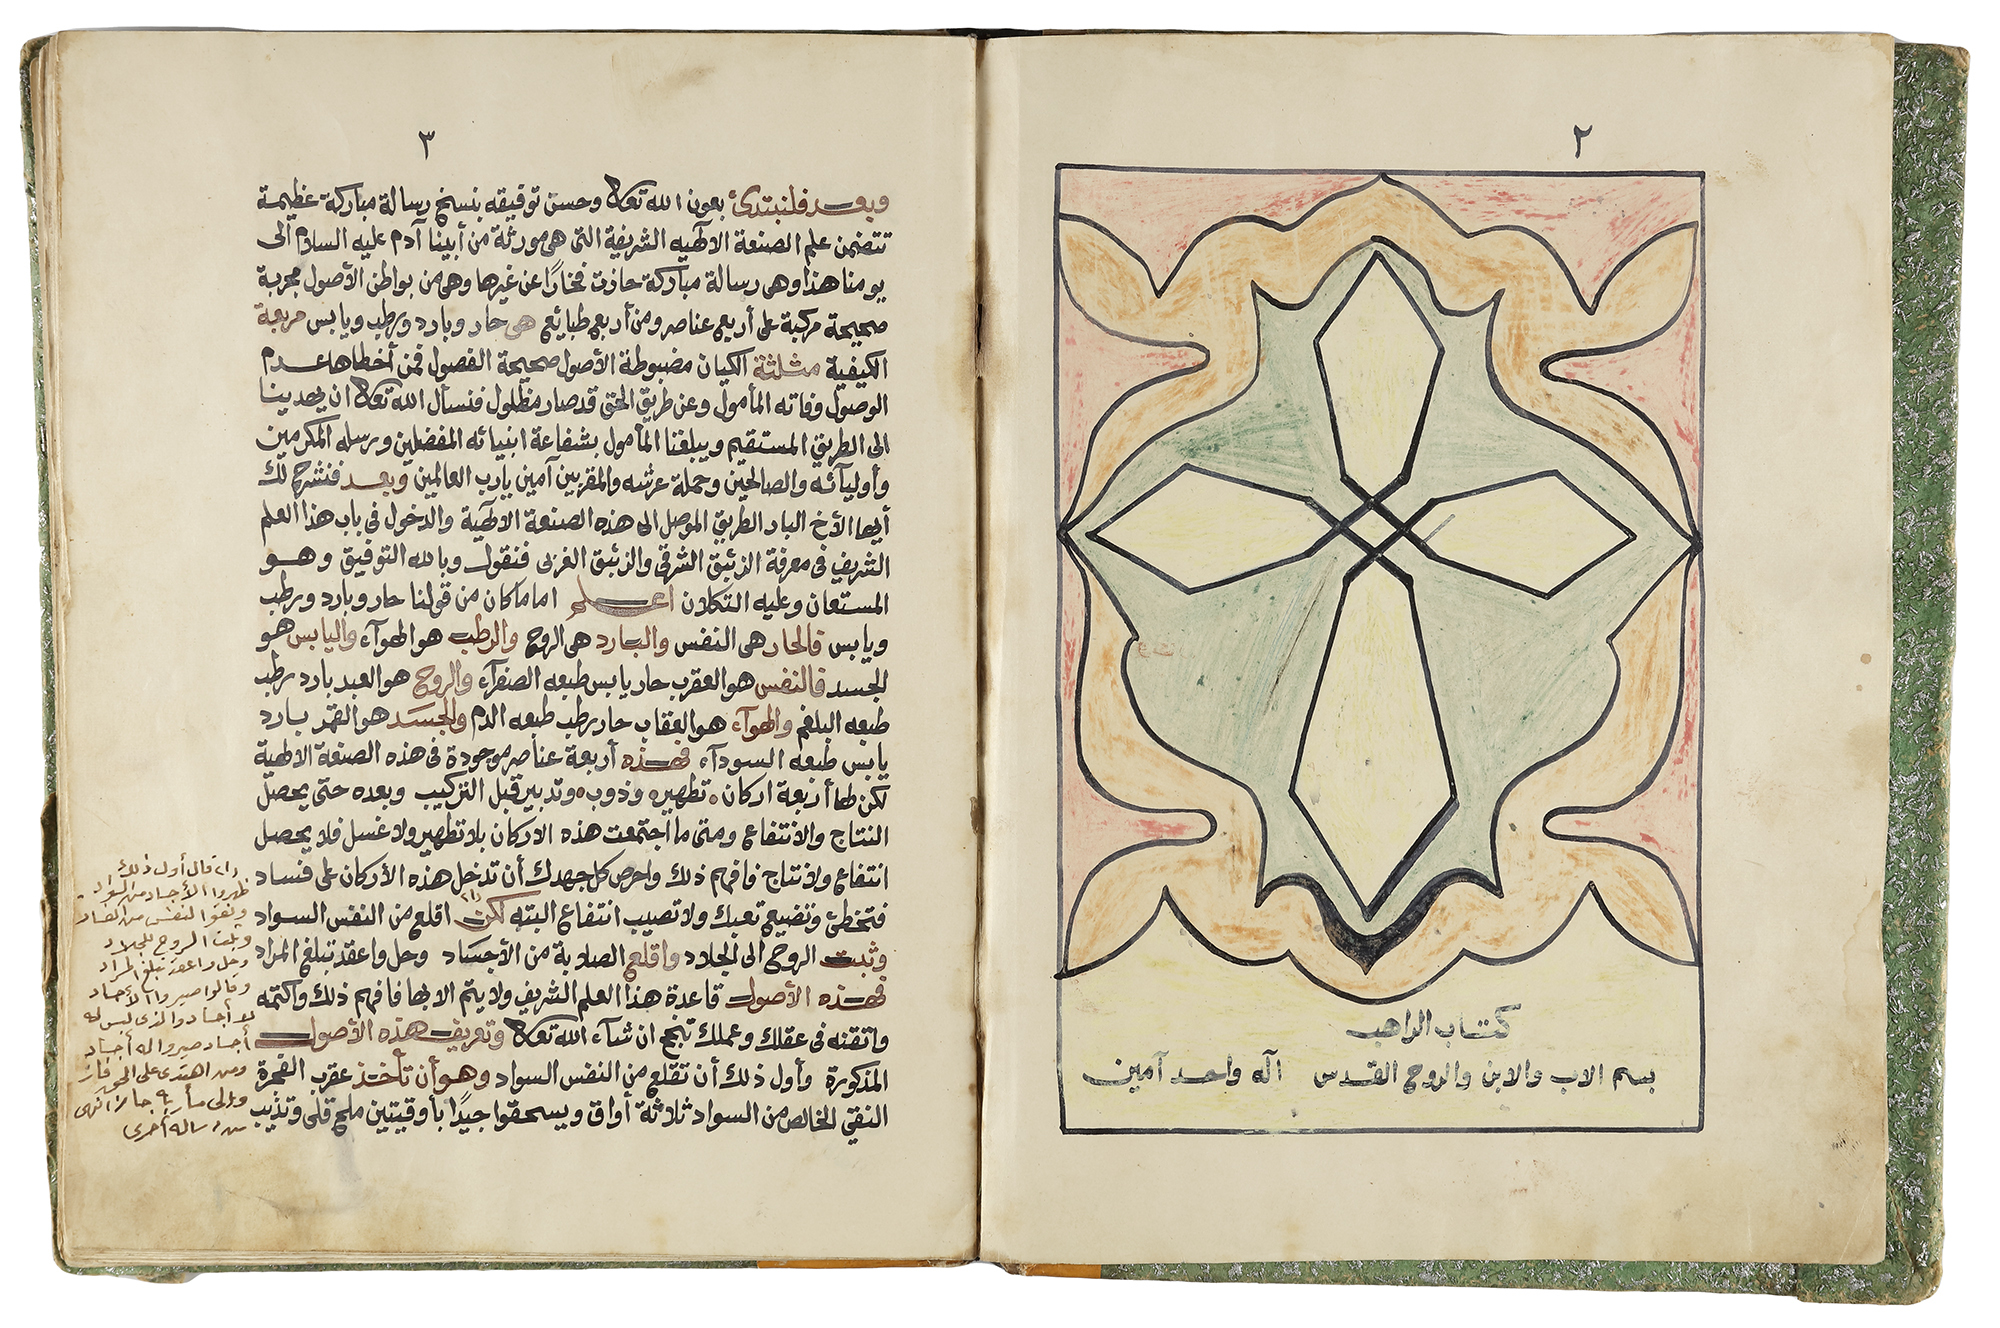 ٢
كتاب الراهب
بسم الاب والابن والروح القدس اله واحد آمين
٣
وبعد فلنبتدئ بعون الله تعالى وحسن توفيقه بنسخ رسالة مباركة عظيمة
تتضمن علم الصنعة الالهيه الشريفة التى هى مورثة من أبينا آدم عليه السلام الى
يومنا هذا وهى رسالة مباركة حازت فخارًا عن غيرها وهى من بواطن الأصول مجربة
صحيحة مركبة على أربع عناصر ومن أربع طبايع هى حار وبارد ورطب ويابس مربعة
الكيفية مثلثة الكيان مضبوطة الأصول صحيحة الفصول فمن أخطاها عدم
الوصول وفاته المأمول وعن طريق الحق قد صار مظلول فنسأل الله تعالى ان يهدينا
الى الطريق المستقيم ويبلغنا المأمول بشفاعة انبيائه المفضلين ورسله المكرمين
وأوليآئه والصالحين وحملة عرشه والمقربين آمين يارب العالمين وبعد فنشرح لك
أيها الأخ البار الطريق الموصل الى هذه الصنعة الالهية والدخول في باب هذا العلم
الشريف فى معرفة الزئبق الشرقى والزئبق الغربى فنقول وبالله التوفيق وهو
المستعان وعليه التكلان اعلم اما ماكان من قولنا حار وبارد ورطب
ويابس فالحار هى النفس والبارد هى الروح والرطب هو الهوآء واليابس هو
الجسد فالنفس هو العقرب حار يابس طبعه الصفرآء والروح هو العبد بارد رطب
طبعه البلغم والهوآء هو العقاب حار رطب طبعه الدم والجسد هو القمر بارد
يابس طبعه السودآء فهذه أربعة عناصر موجودة فى هذه الصنعة الالهية
لكن لها أربعة اركان تطهير وذوب وتدبير قبل التركيب وبعده حتى يحصل
النتاج والانتفاع ومتى ما اجتمعت هذه الاركان بلا تطهير ولا غسل فلا يحصل
انتفاع ولا نتاج فافهم ذلك واحرص كل جهدك أن تدخل هذه الأركان على فساد
فتخطئ وتضيع تعبك ولا تصيب انتفاع البته لكن اقلع من النفس السواد
وثبت الروح الى الجلاد واقلع الصلابة من الأجساد وحل واعقد تبلغ المراد
فهذه الأصول قاعدة هذا العلم الشريف ولا يتم الا بها فافهم ذلك واكتمه
واتقنه فى عقلك وعملك تنجح ان شآء الله تعالى وتعريف هذه الأصول
المذكورة وأول ذلك أن تقلع من النفس السواد وهو أن تأخذ عقرب الفجرة
النقي الخالص من السواد ثلاثة أواق ويسحقوا جيدًا بأوقيتين ملح قلى وتذيب
قال أول ذلك
طهروا الأجساد من السواد
ونقوا النفس من الفساد
وثبت الروح للجلاد
وحل واعقد تبلغ المراد
وقالوا صيروا الأجساد
أجساد والذى ليس له
أجساد صيروا له أجساد
ومن اهتدى على الحق فاز
من رسالة أخرى